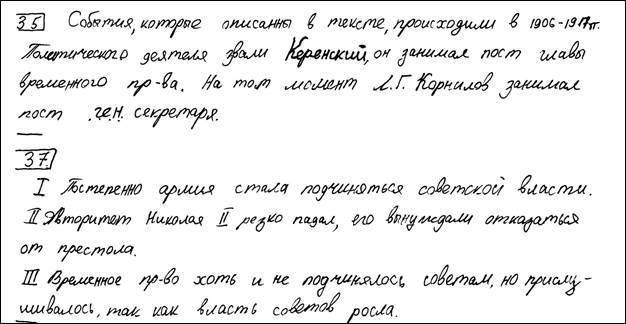 35 События, которые описанны в тексте, происходили в 1906-1917гг.
Политического деятеля звали Керенский, он занимал пост главы
временного пр-ва. На тот момент Л.Г. Корнилов занимал
пост ген. секретаря.
37
I Постепенно армия стала подчиняться советской власти.
II Авторитет Николая II резко падал, его вынуждали отказаться
от престола.
III Временное пр-во хоть и не подчинялось советам, но прислу-
шивалось, так как власть советов росла.